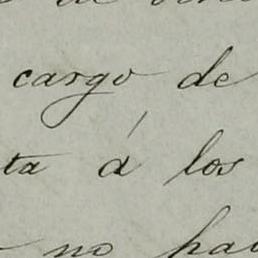 cargo de
ta á los
no